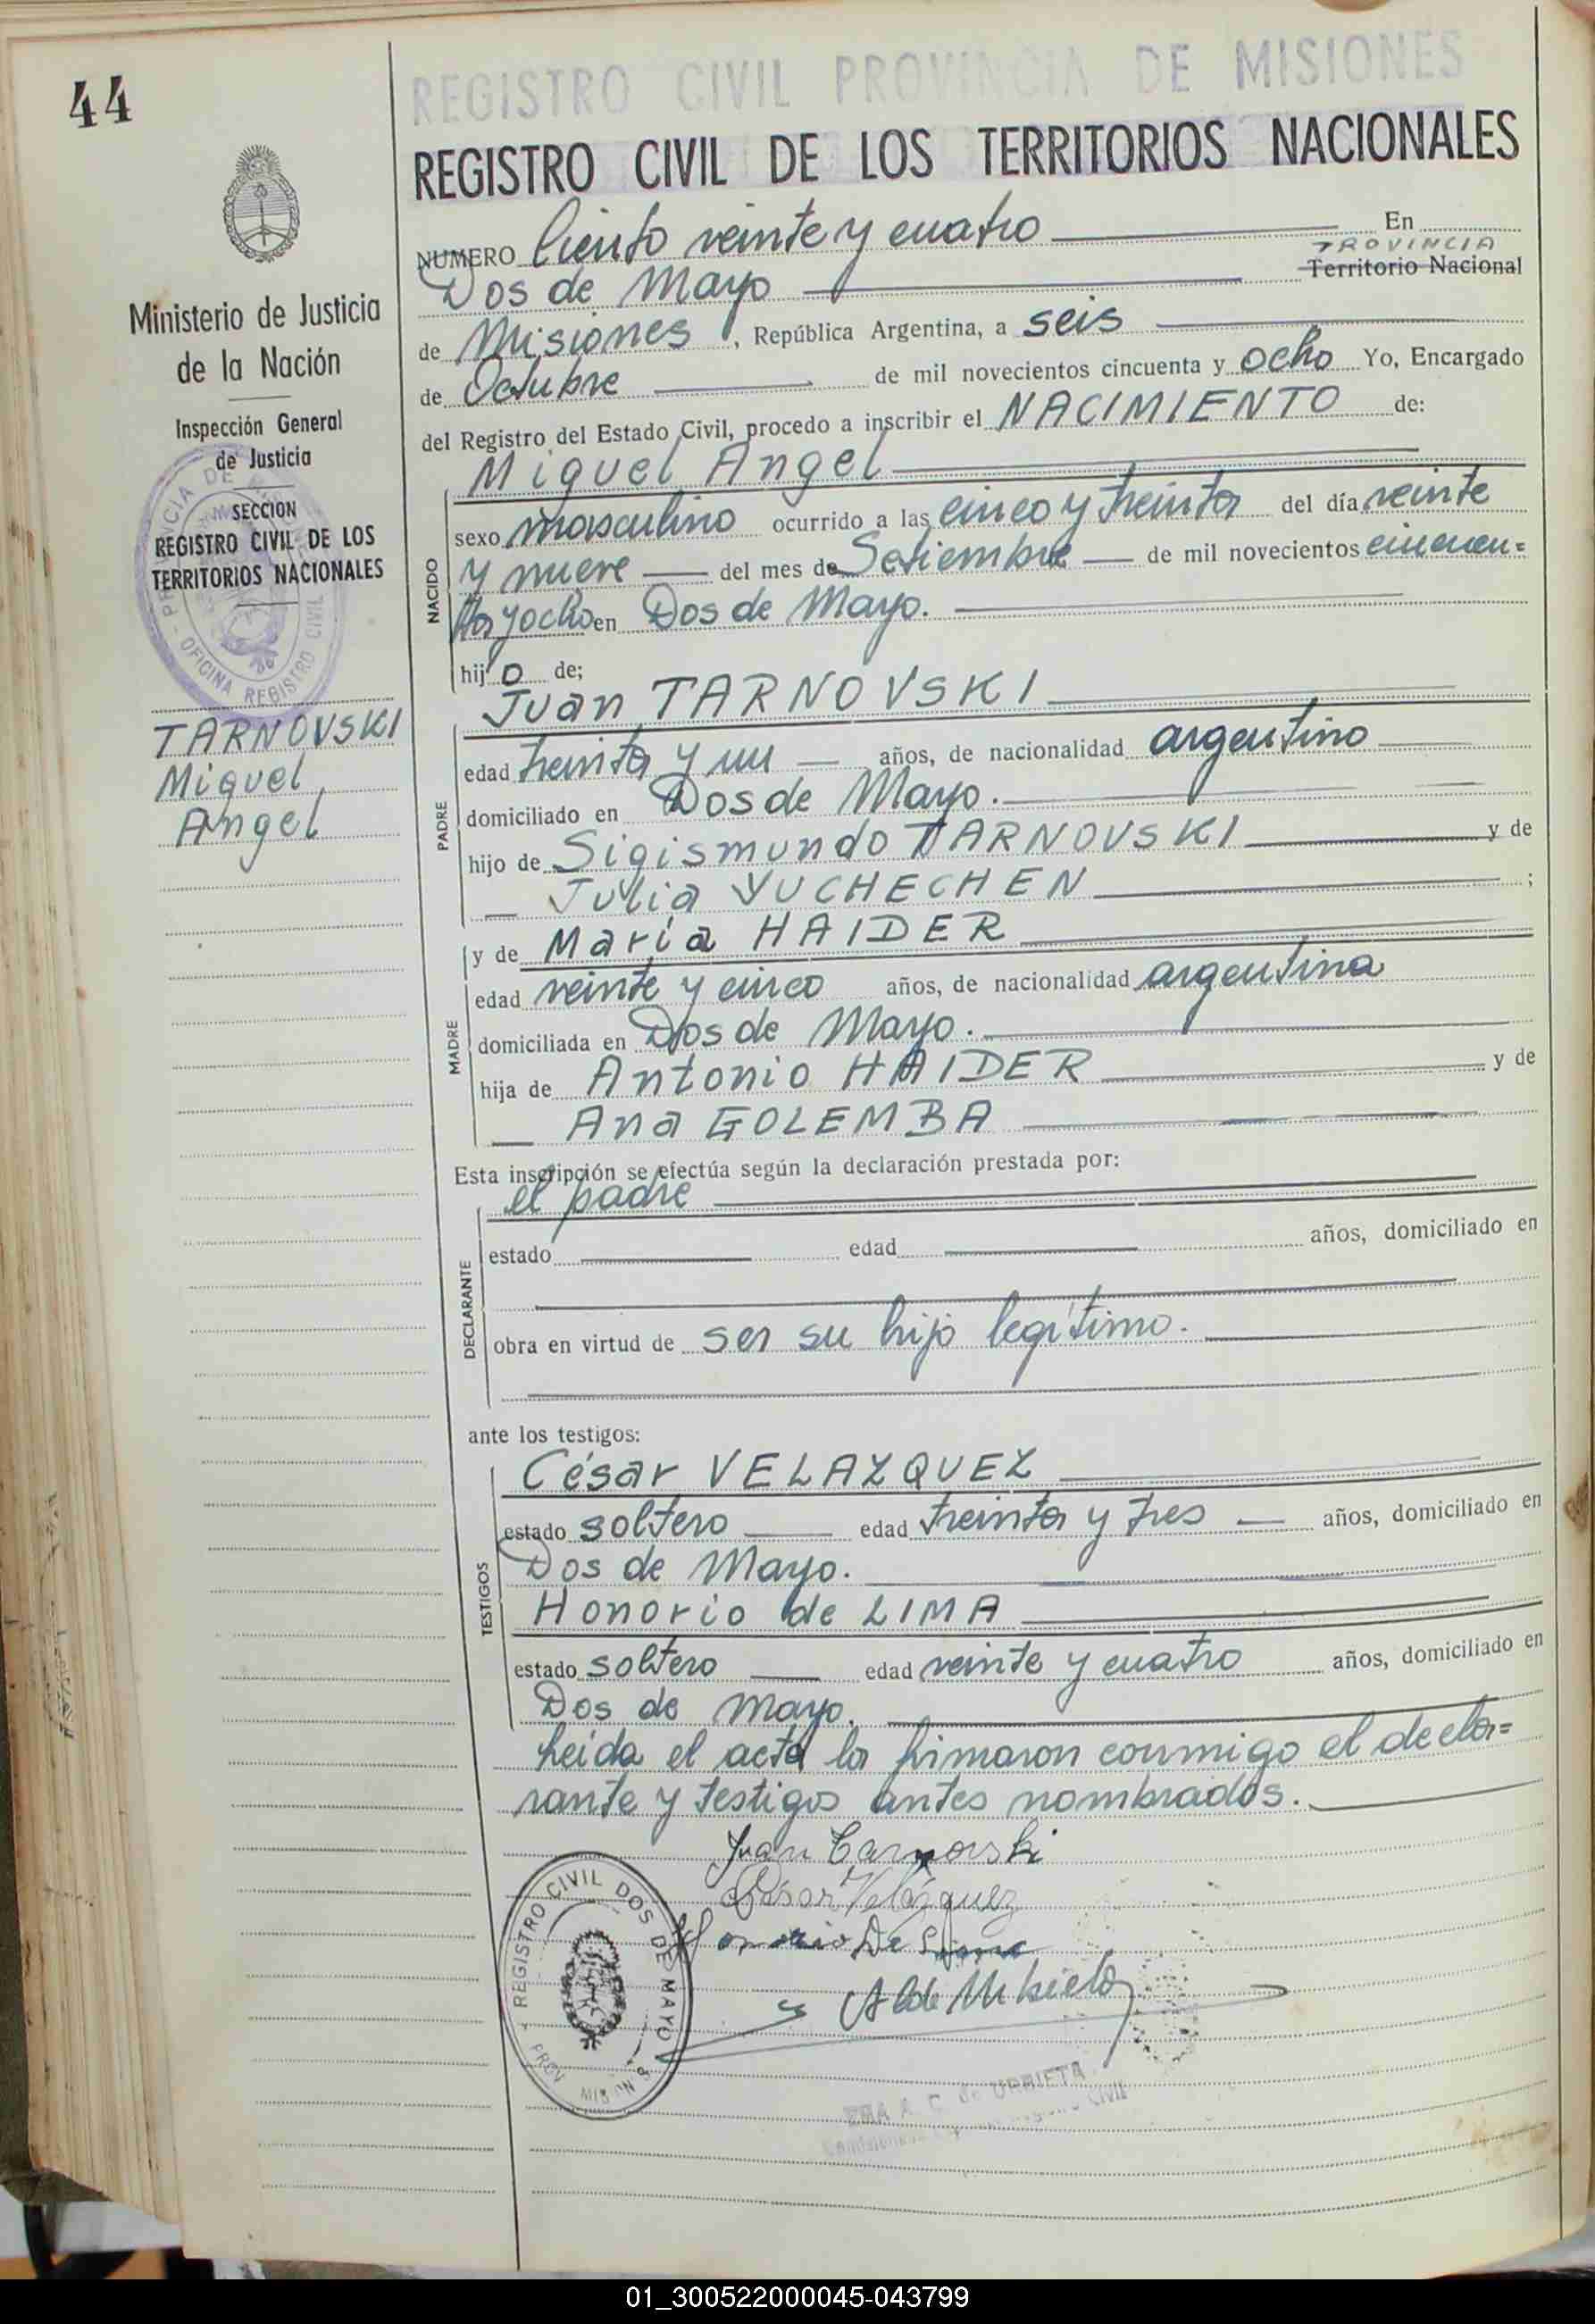 44
REGISTRO CIVIL PROVINCIA DE MISIONES
REGISTRO CIVIL DE LOS TERRITORIOS NACIONALES
Ministerio de Justicia
de la Nación
Inspección General
de Justicia
SECCION
REGISTRO CIVIL DE LOS
TERRITORIOS NACIONALES
OFICINA REGISTRO CIVIL
TARNOVSKI
Miguel
Angel
NUMERO Ciento veinte y cuatro En
PROVINCIA
Dos de Mayo Territorio Nacional
de Misiones, República Argentina, a seis
de Octubre de mil novecientos cincuenta y ocho Yo, Encargado
del Registro del Estado Civil, procedo a inscribir el NACIMIENTO de:
Miguel Angel
NACIDO
sexo masculino ocurrido a las cinco y treinta del día veinte
y nueve del mes de Setiembre de mil novecientos cincuen=
ta y ocho en Dos de Mayo.
hijo de;
Juan TARNOVSKI
PADRE
edad treinta y un años, de nacionalidad argentino
domiciliado en Dos de Mayo.
hijo de Sigismundo TARNOVSKI y de
Julia YUCHECHEN ;
MADRE
y de María HAIDER
edad veinte y cinco años, de nacionalidad argentina
domiciliada en Dos de Mayo.
hija de Antonio HAIDER y de
Ana GOLEMBA
Esta inscripción se efectúa según la declaración prestada por:
el padre
DECLARANTE
estado edad años, domiciliado en
obra en virtud de ser su hijo legítimo.
ante los testigos:
César VELAZQUEZ
TESTIGOS
estado soltero edad treinta y tres años, domiciliado en
Dos de Mayo.
Honorio de LIMA
estado soltero edad veinte y cuatro años, domiciliado en
Dos de Mayo.
Leida el acta la firmaron conmigo el decla=
rante y testigos antes nombrados.
Juan Tarnovski
César Velázquez
Honorio De Lima
REGISTRO CIVIL DOS DE MAYO
PROV MISIONES
A. C. de URRIETA
01_300522000045-043799